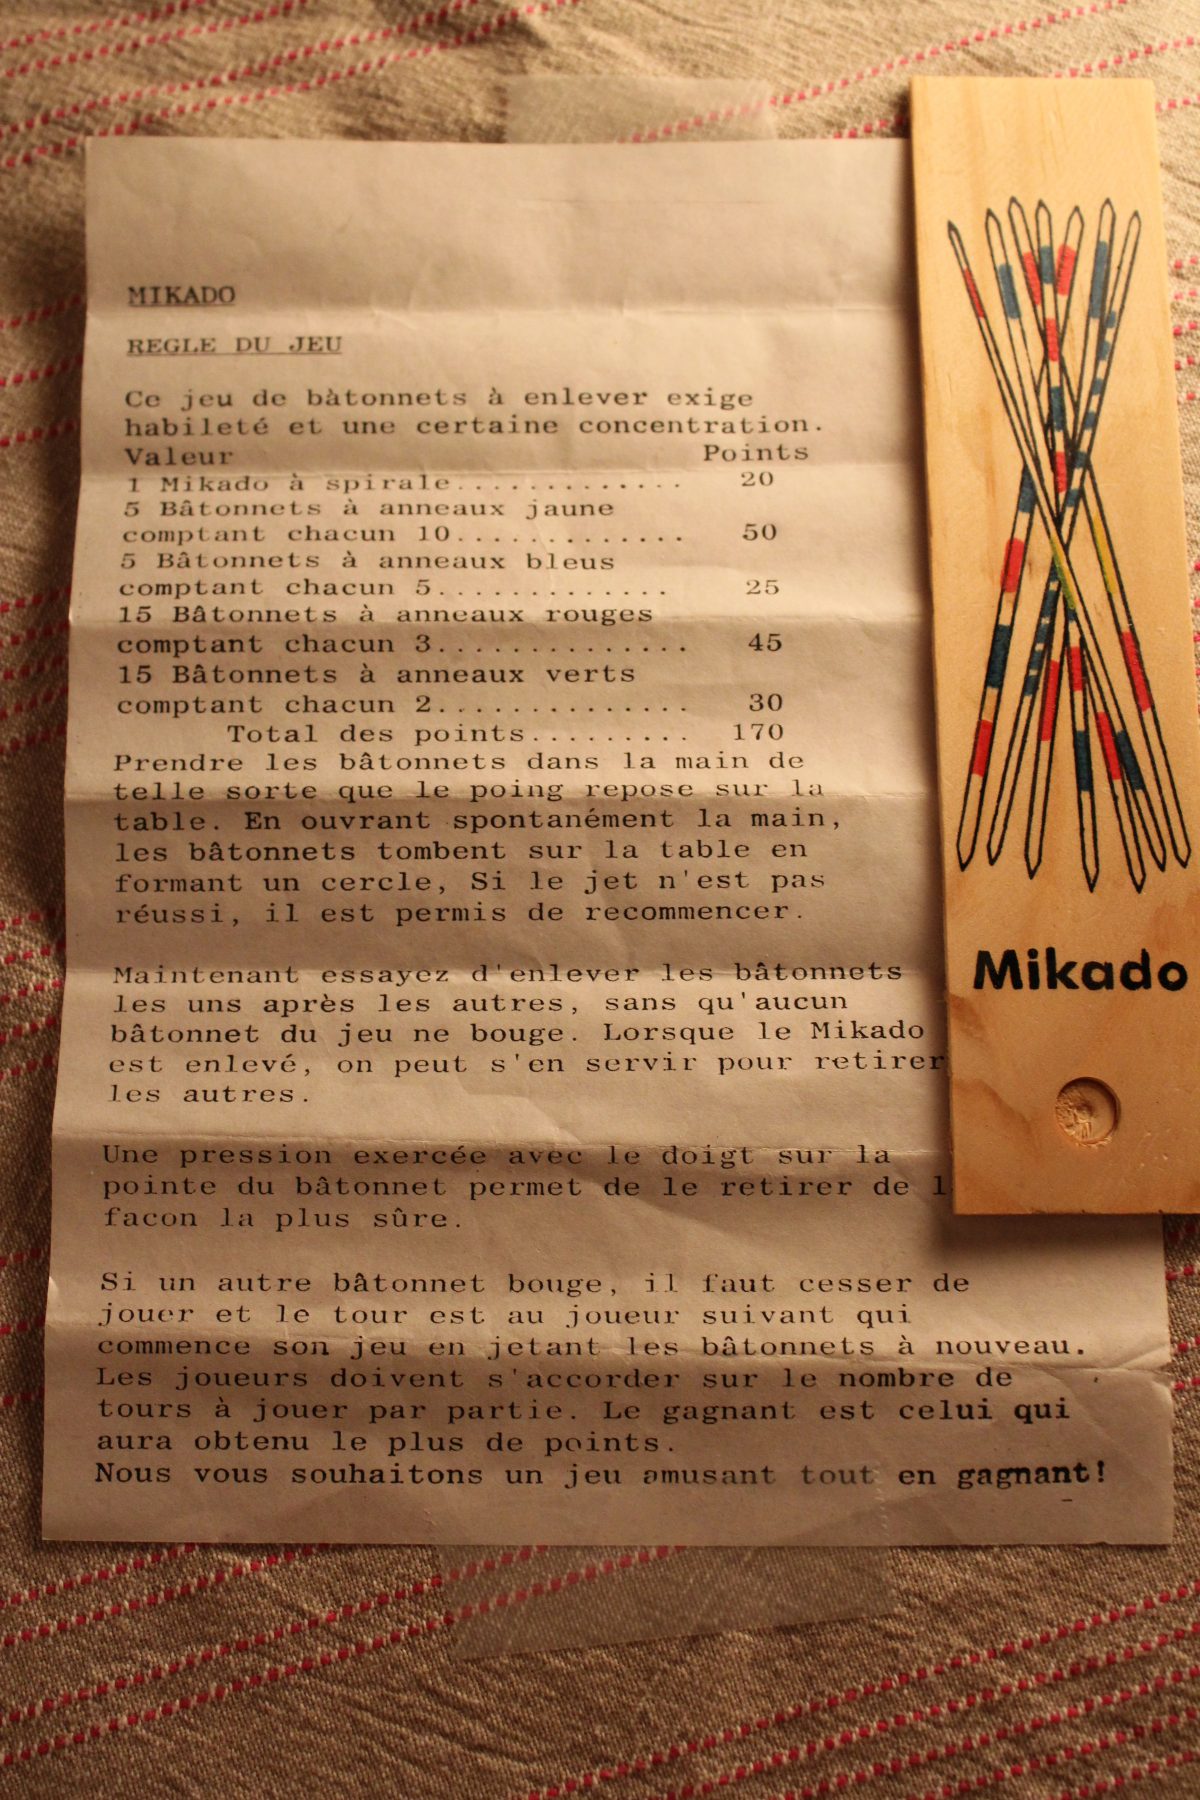 MIKADO
REGLE DU JEU
Ce jeu de bàtonnets à enlever exige
habileté et une certaine concentration.
Valeur Points
1 Mikado à spirale............. 20
5 Bâtonnets à anneaux jaune
comptant chacun 10............. 50
5 Bâtonnets à anneaux bleus
comptant chacun 5............. 25
15 Bâtonnets à anneaux rouges
comptant chacun 3.............. 45
15 Bâtonnets à anneaux verts
comptant chacun 2.............. 30
Total des points......... 170
Prendre les bâtonnets dans la main de
telle sorte que le poing repose sur la
table. En ouvrant spontanément la main,
les bâtonnets tombent sur la table en
formant un cercle, Si le jet n'est pas
réussi, il est permis de recommencer.
Maintenant essayez d'enlever les bâtonnets
les uns après les autres, sans qu'aucun
bâtonnet du jeu ne bouge. Lorsque le Mikado
est enlevé, on peut s'en servir pour retirer
les autres.
Une pression exercée avec le doigt sur la
pointe du bâtonnet permet de le retirer de
facon la plus sûre.
Si un autre bâtonnet bouge, il faut cesser de
jouer et le tour est au joueur suivant qui
commence son jeu en jetant les bâtonnets à nouveau.
Les joueurs doivent s'accorder sur le nombre de
tours à jouer par partie. Le gagnant est celui qui
aura obtenu le plus de points.
Nous vous souhaitons un jeu amusant tout en gagnant!
Mikado